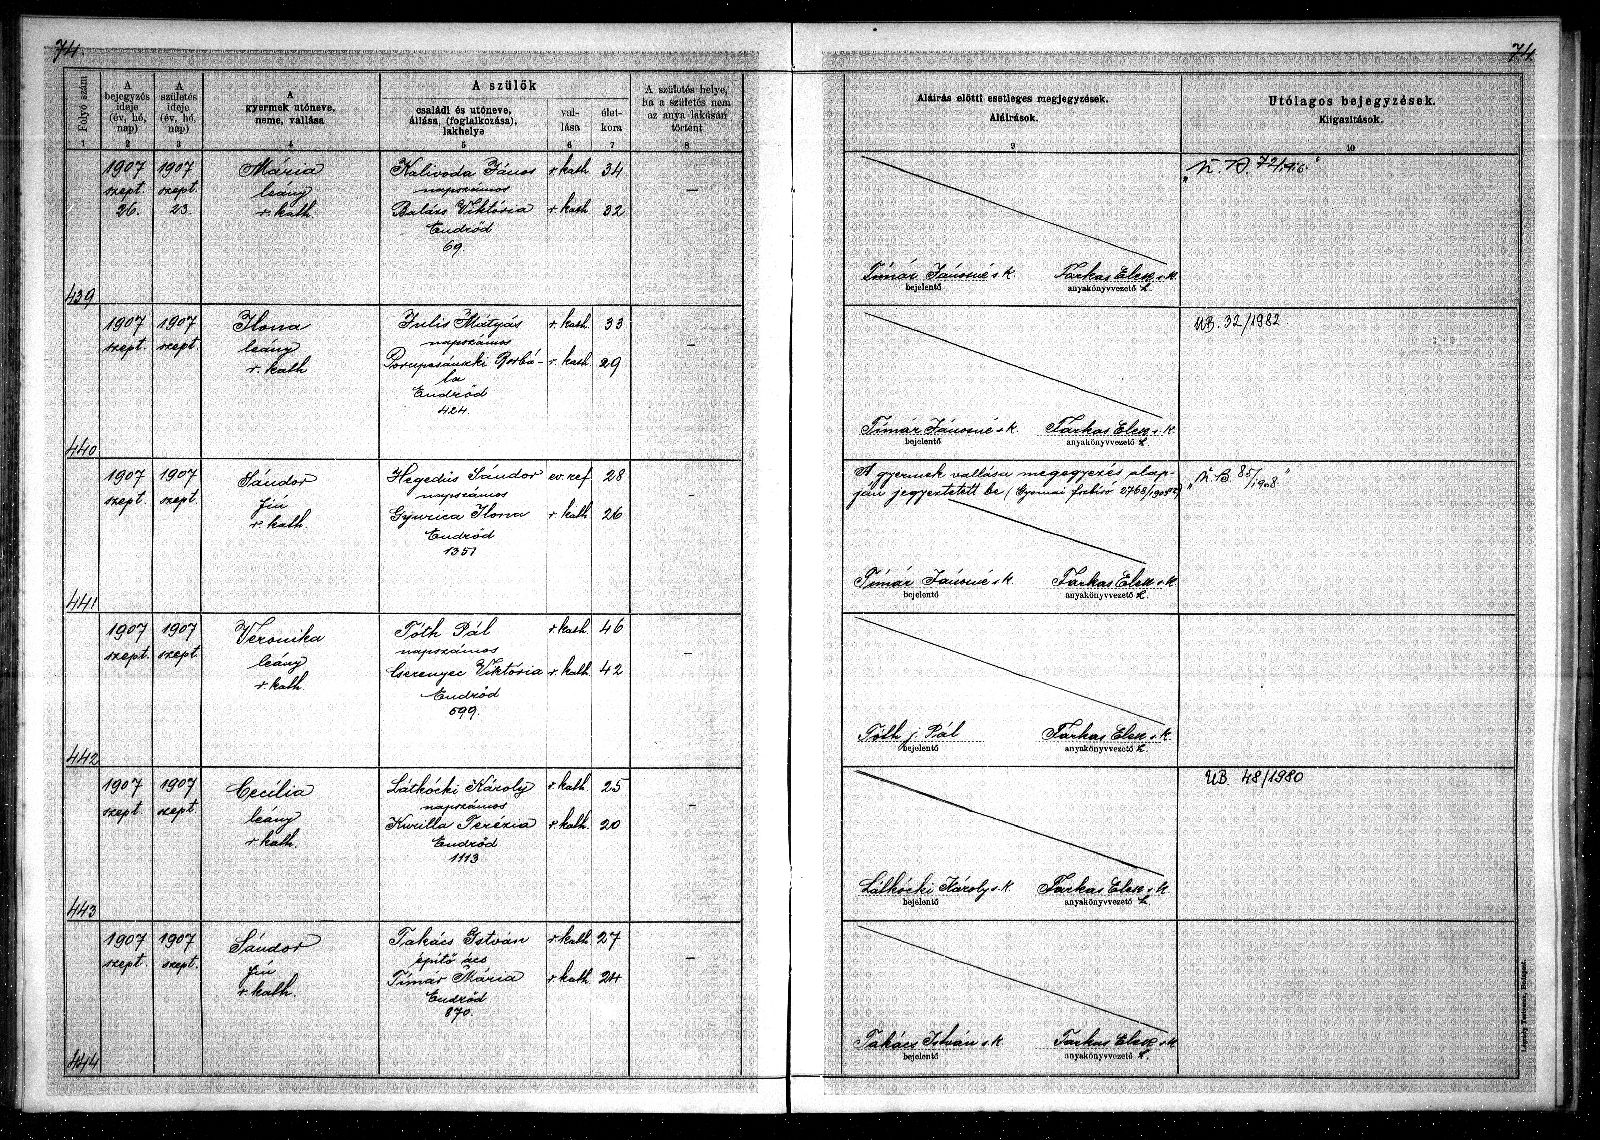 74
74
Folyó szám
A bejegyzés ideje (év, hó, nap)
A születés ideje (év, hó, nap)
A gyermek utóneve, neme, vallása
A szülők
családi és utóneve, állása, (foglalkozása), lakhelye
vallása
életkora
A születés helye, ha a születés nem az anya lakásán történt
Aláírás előtti esetleges megjegyzések.
Aláírások.
Utólagos bejegyzések.
Kiigazítások.
1 2 3 4 5 6 7 8 9 10
439
1907 szept. 26.
1907 szept. 23
Mária
leány
r. kath.
Kalivoda János r. kath. 34
napszámos
Balázs Viktória r. kath. 32
Endrőd
69.
–
Tímár Jánosné s.k. Farkas Elek s.k.
bejelentő anyakönyvvezető h.
440
1907 szept.
1907 szept.
Ilona
leány
r. kath
Iulis Mátyás r. kath. 33
napszámos
Borbála r. kath. 29
Endrőd
424.
–
Tímár Jánosné s.k. Farkas Elek s.k.
bejelentő anyakönyvvezető h.
UB. 32/1982
441
1907 szept.
1907 szept.
Sándor
fiú
r. kath.
Hegedüs Sándor ev. ref 28
napszámos
Gyurica Ilona r. kath. 26
Endrőd
1351
–
A gyermek vallása megegyezés alap-
ján jegyeztetett be (Gyomai főzbíró 2768/1908
Tímár Jánosné s.k. Farkas Elek s.k.
bejelentő anyakönyvvezető h.
„K. B. 85/1908"
442
1907 szept.
1907 szept.
Veronika
leány
r. kath.
Tóth Pál r. kath. 46
napszámos
Cserenyec Viktória r. kath. 42
Endrőd
599.
–
Tóth j. Pál Farkas Elek s.k.
bejelentő anyakönyvvezető h.
443
1907 szept.
1907 szept.
Cecília
leány
r. kath.
Látkócki Károly r. kath. 25
napszámos
Kurilla Terézia r. kath. 20
Endrőd
1113
–
Látkócki Károly s.k. Farkas Elek s.k.
bejelentő anyakönyvvezető h.
UB 48/1980
444
1907 szept.
1907 szept.
Sándor
fiú
r. kath.
Takács István r. kath. 27
építő ács
Tímár Mária r. kath. 24
Endrőd
870.
–
Takács István s.k. Farkas Elek s.k.
bejelentő anyakönyvvezető h.